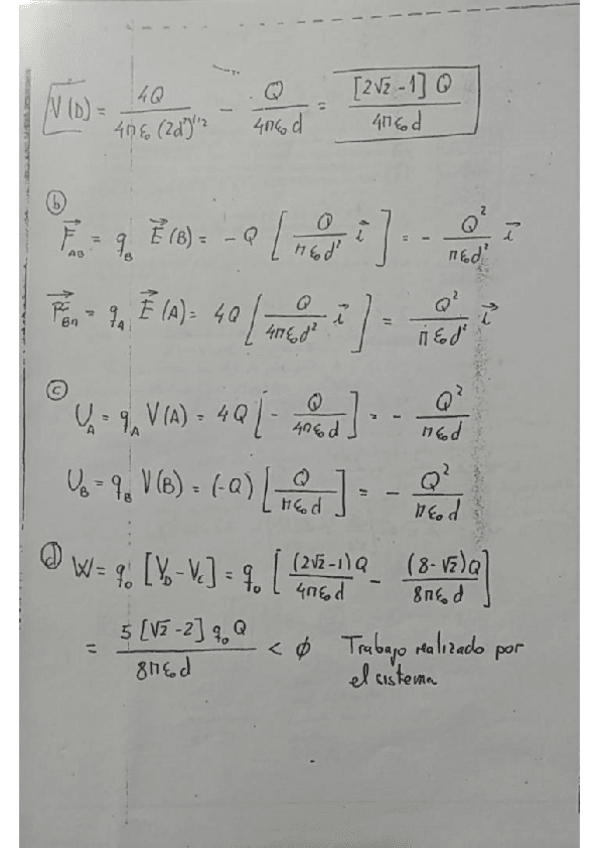 V(D) = 4Q / 4πε₀(2d²)^1/2 − Q / 4πε₀d = [2√2 −1] Q / 4πε₀d
b
F⃗_AB = q_B E⃗(B) = − Q [ Q / πε₀d² i⃗ ] = − Q² / πε₀d² i⃗
F⃗_BA = q_A E⃗(A) = 4Q [ Q / 4πε₀d² i⃗ ] = Q² / πε₀d² i⃗
c
U_A = q_A V(A) = 4Q [ − Q / 4πε₀d ] = − Q² / πε₀d
U_B = q_B V(B) = (−Q) [ Q / πε₀d ] = − Q² / πε₀d
d W = q₀ [V_D − V_C] = q₀ [ (2√2−1)Q / 4πε₀d − (8−√2)Q / 8πε₀d ]
= 5 [√2 −2] q₀ Q / 8πε₀d < ϕ Trabajo realizado por
el sistema